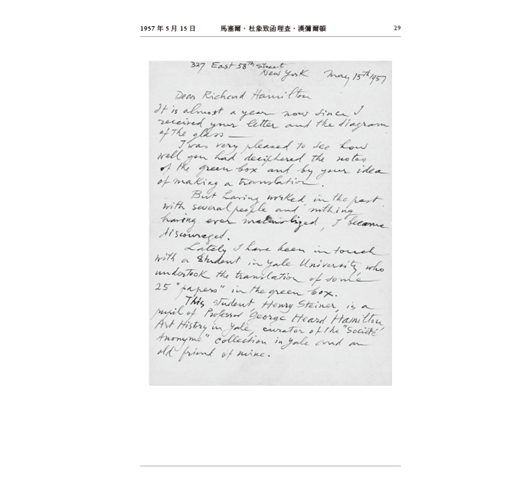 1957 年 5 月 15 日 馬塞爾・杜象致函理查・漢彌爾頓 29
327 East 58th Street
New York May 15th 1957
Dear Richard Hamilton
It is almost a year now since I
received your letter and the diagram
of the glass —
I was very pleased to see how
well you had deciphered the notes
of the green box and by your idea
of making a translation.
But having worked in the past
with several people and nothing
having ever materialized, I became
discouraged.
Lately I have been in touch
with a student in Yale University, who
undertook the translation of some
25 "papers" in the green box.
This student, Henry Steiner, is a
pupil of Professor George Heard Hamilton,
Art History in Yale, curator of the "Société
Anonyme" collection in Yale and an
old friend of mine.